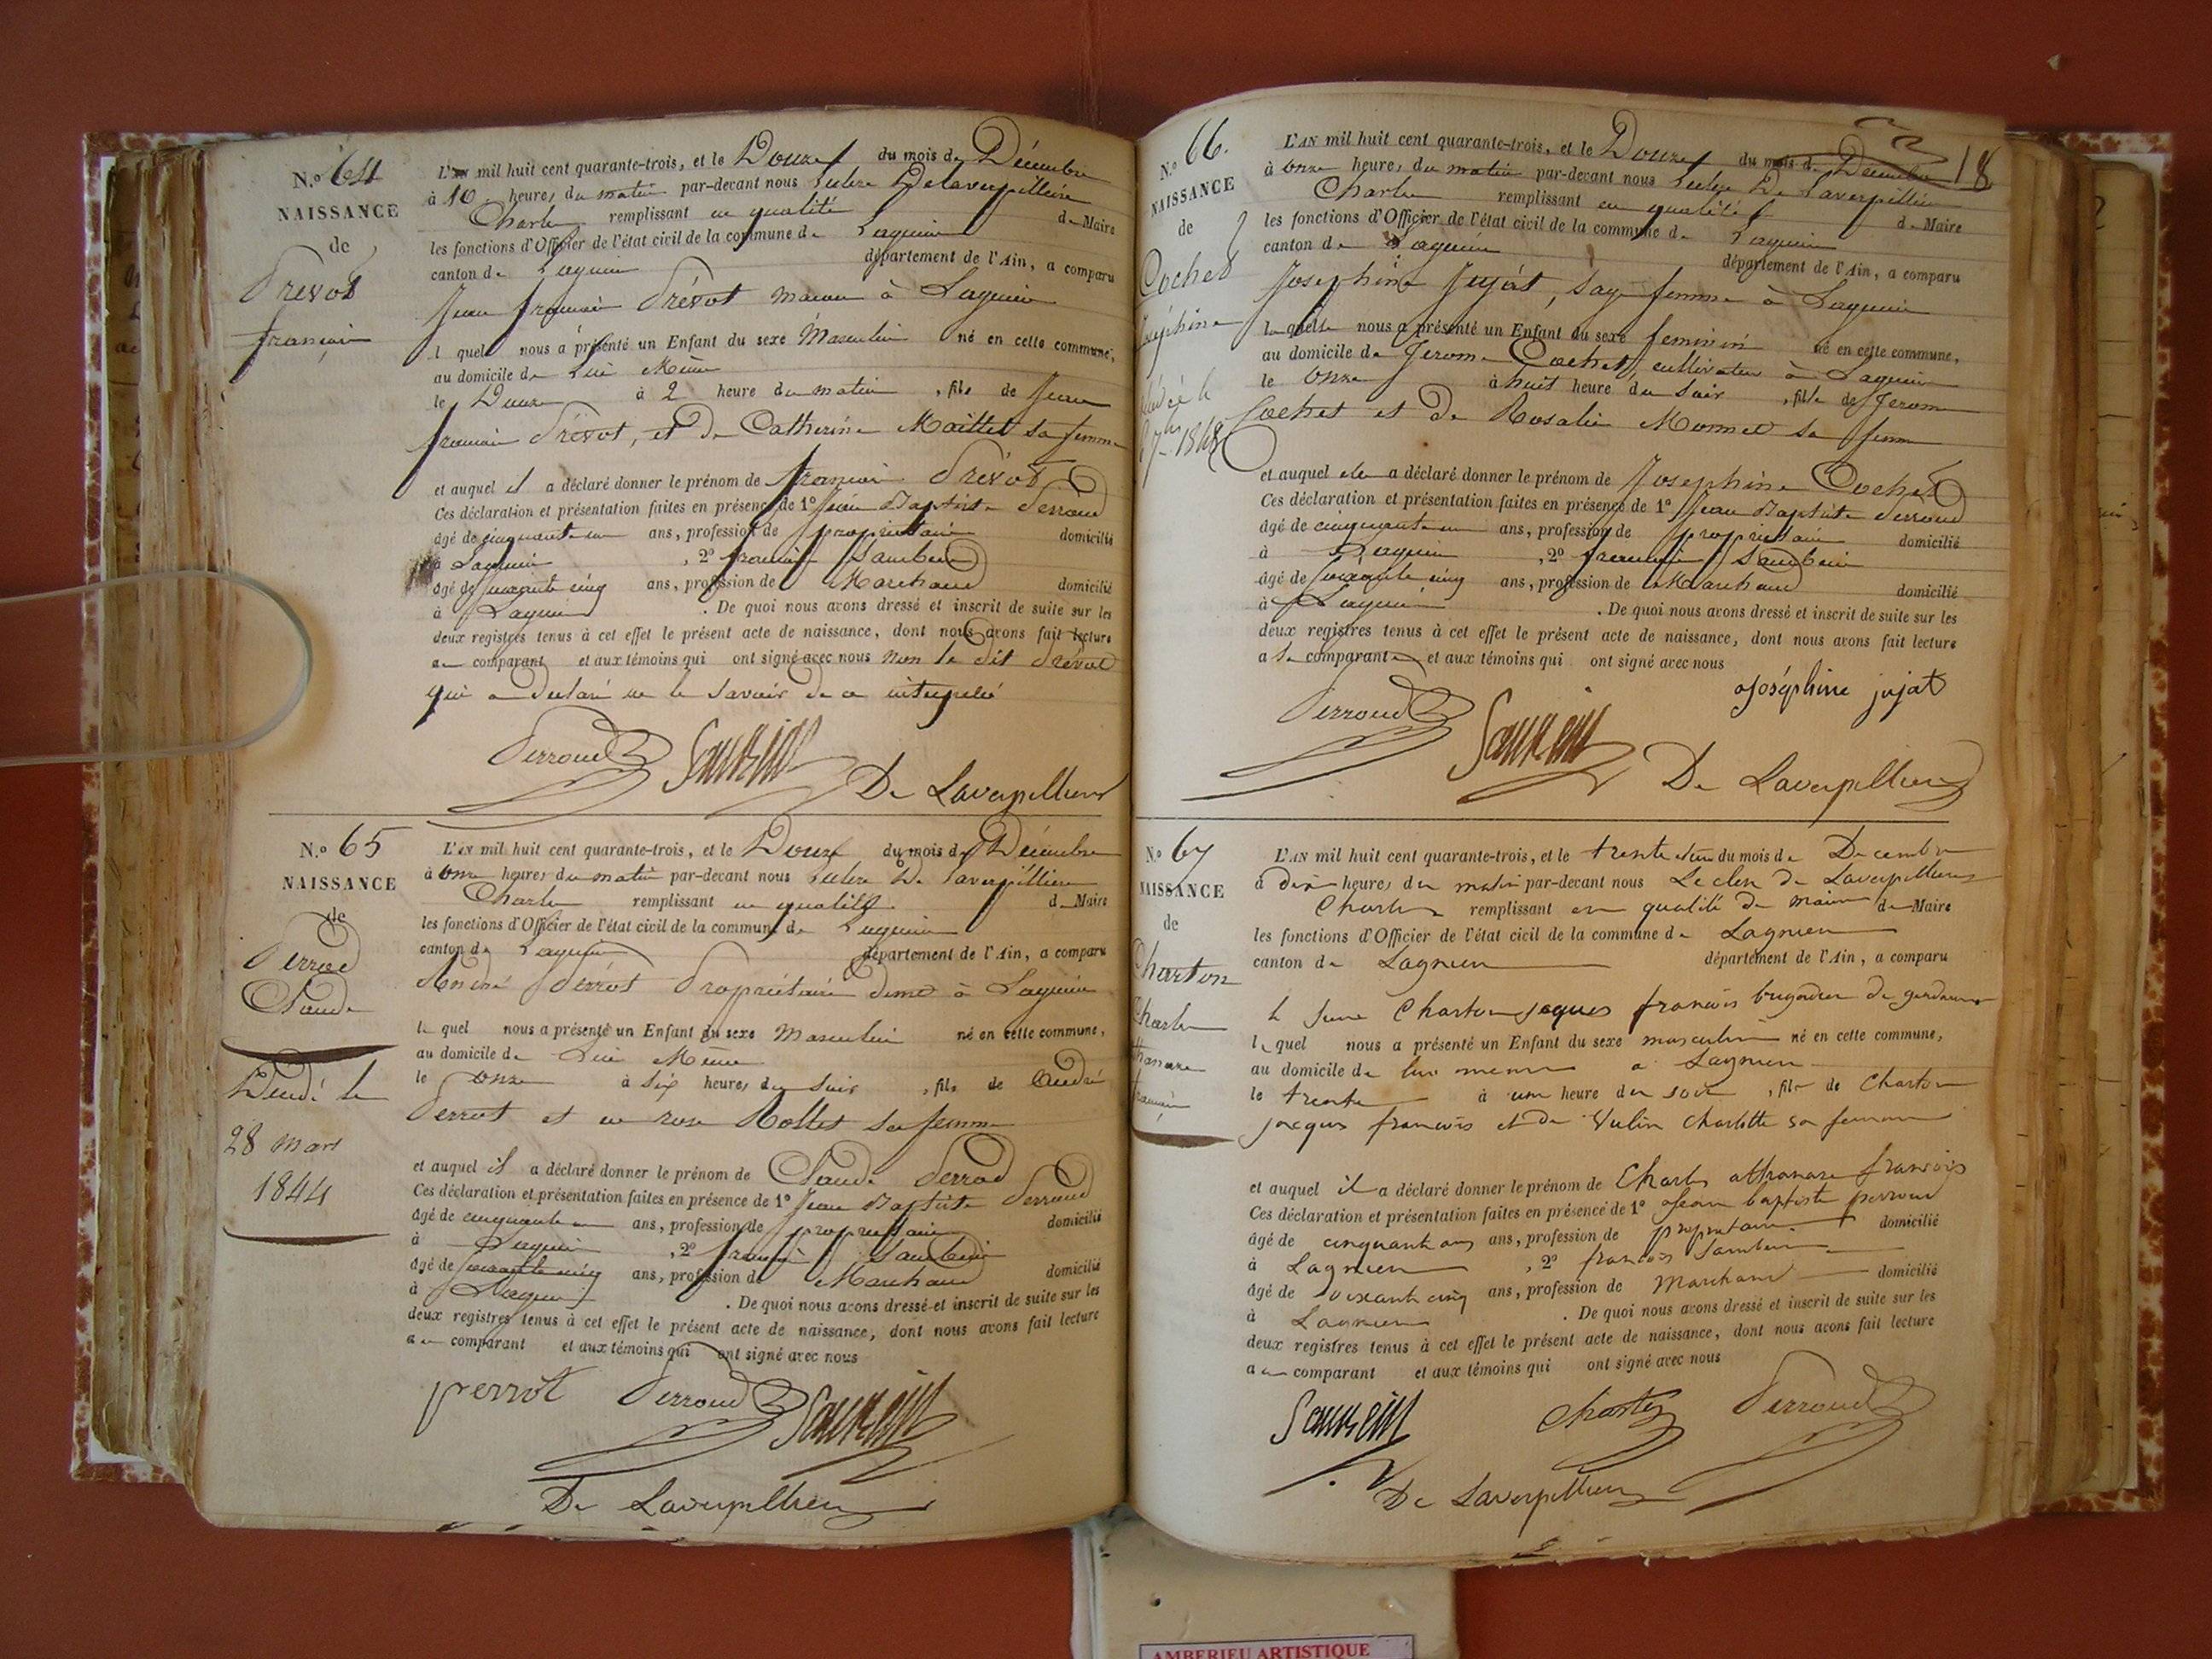 N.° 64
NAISSANCE
de
Prévot
françois
L'AN mil huit cent quarante-trois, et le Douze du mois de Décembre
à 10 heures du matin par-devant nous Leclerc Delaverpillière
Charles remplissant en qualité de Maire
les fonctions d'Officier de l'état civil de la commune de Lagnieu
canton de Lagnieu département de l'Ain, a comparu
Jean françois Prévot maçon à Lagnieu
lequel nous a présenté un Enfant du sexe Masculin né en cette commune,
au domicile de Lui Même
le Douze à 2 heure du matin, fils de Jean
françois Prévot, et de Catherine Maillet sa femme
et auquel il a déclaré donner le prénom de françois Prévot
Ces déclaration et présentation faites en présence de 1° Jean Baptiste Perroud
âgé de cinquante un ans, profession de propriétaire domicilié
à Lagnieu, 2° françois
âgé de soixante cinq ans, profession de Marchand domicilié
à Lagnieu. De quoi nous avons dressé et inscrit de suite sur les
deux registres tenus à cet effet le présent acte de naissance, dont nous avons fait lecture
au comparant et aux témoins qui ont signé avec nous non le dit Prévot
qui a déclaré ne le savoir de ce interpellé
Perroud
De Laverpilliere
N.° 65
NAISSANCE
de
Perrod
Claude
Décédé le
28 mars
1844
L'AN mil huit cent quarante-trois, et le Douze du mois de Décembre
à onze heures du matin par-devant nous Leclerc De Laverpilliere
Charles remplissant en qualité de Maire
les fonctions d'Officier de l'état civil de la commune de Lagnieu
canton de Lagnieu département de l'Ain, a comparu
André Perrot Propriétaire demt à Lagnieu
lequel nous a présenté un Enfant du sexe Masculin né en cette commune,
au domicile de Lui Même
le onze à six heures du soir, fils de André
Perrot et de rose Rollet sa femme
et auquel il a déclaré donner le prénom de Claude Perrod
Ces déclaration et présentation faites en présence de 1° Jean Baptiste Perroud
âgé de cinquante un ans, profession de propriétaire domicilié
à Lagnieu, 2° françois
âgé de soixante cinq ans, profession de Marchand domicilié
à Lagnieu. De quoi nous avons dressé et inscrit de suite sur les
deux registres tenus à cet effet le présent acte de naissance, dont nous avons fait lecture
au comparant et aux témoins qui ont signé avec nous
perrot Perroud
De Laverpilliere
18
N.° 66.
NAISSANCE
de
Cochet
Joséphine
1848
L'AN mil huit cent quarante-trois, et le Douze du mois de Décembre
à onze heures du matin par-devant nous Leclerc De Laverpilliere
Charles remplissant en qualité de Maire
les fonctions d'Officier de l'état civil de la commune de Lagnieu
canton de Lagnieu département de l'Ain, a comparu
Josephine Jujat, sage femme à Lagnieu
laquelle nous a présenté un Enfant du sexe feminin né en cette commune,
au domicile de Jerome Cochet, cultivateur à Lagnieu
le onze à huit heure du soir, fille de Jerome
Cochet et de Rosalie Monnet sa femme
et auquel elle a déclaré donner le prénom de Josephine Cochet
Ces déclaration et présentation faites en présence de 1° Jean Baptiste Perroud
âgé de cinquante un ans, profession de propriétaire domicilié
à Lagnieu, 2° françois
âgé de soixante cinq ans, profession de Marchand domicilié
à Lagnieu. De quoi nous avons dressé et inscrit de suite sur les
deux registres tenus à cet effet le présent acte de naissance, dont nous avons fait lecture
a la comparante et aux témoins qui ont signé avec nous
Joséphine jujat
Perroud
De Laverpilliere
N.° 67
NAISSANCE
de
Charton
Charles
athanase
françois
L'AN mil huit cent quarante-trois, et le trente et un du mois de Decembre
à dix heures du matin par-devant nous Leclerc De Laverpilliere
Charles remplissant en qualité de maire de Maire
les fonctions d'Officier de l'état civil de la commune de Lagnieu
canton de Lagnieu département de l'Ain, a comparu
le sieur Charton jaques francois brigadier de gendarmerie
lequel nous a présenté un Enfant du sexe masculin né en cette commune,
au domicile de lui meme a Lagnieu
le trente à une heure du soir, fils de Charton
jacques francois et de Vulin Charlotte sa femme
et auquel il a déclaré donner le prénom de Charles athanase francois
Ces déclaration et présentation faites en présence de 1° Jean baptiste perroud
âgé de cinquante ans, profession de propriétaire domicilié
à Lagnieu, 2° francois
âgé de soixante cinq ans, profession de Marchand domicilié
à Lagnieu. De quoi nous avons dressé et inscrit de suite sur les
deux registres tenus à cet effet le présent acte de naissance, dont nous avons fait lecture
au comparant et aux témoins qui ont signé avec nous
Charton Perroud
De Laverpilliere
AMBERIEU ARTISTIQUE